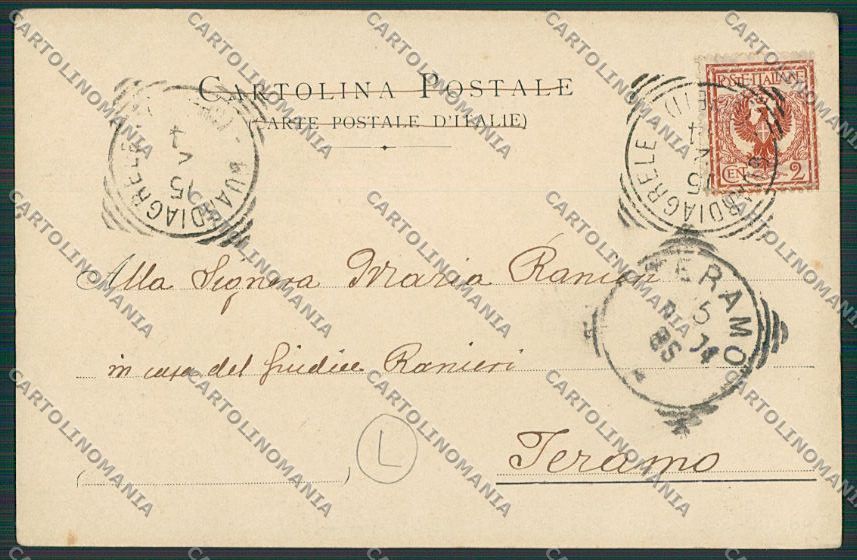 CARTOLINA POSTALE
(CARTE POSTALE D'ITALIE)
POSTE ITALIANE
CEN. 2
GUARDIAGRELE
15 V
GUARDIAGRELE
15 V
TERAMO
Alla Signora Maria Ranieri
in casa del Giudice Ranieri
Teramo
L
CARTOLINOMANIA